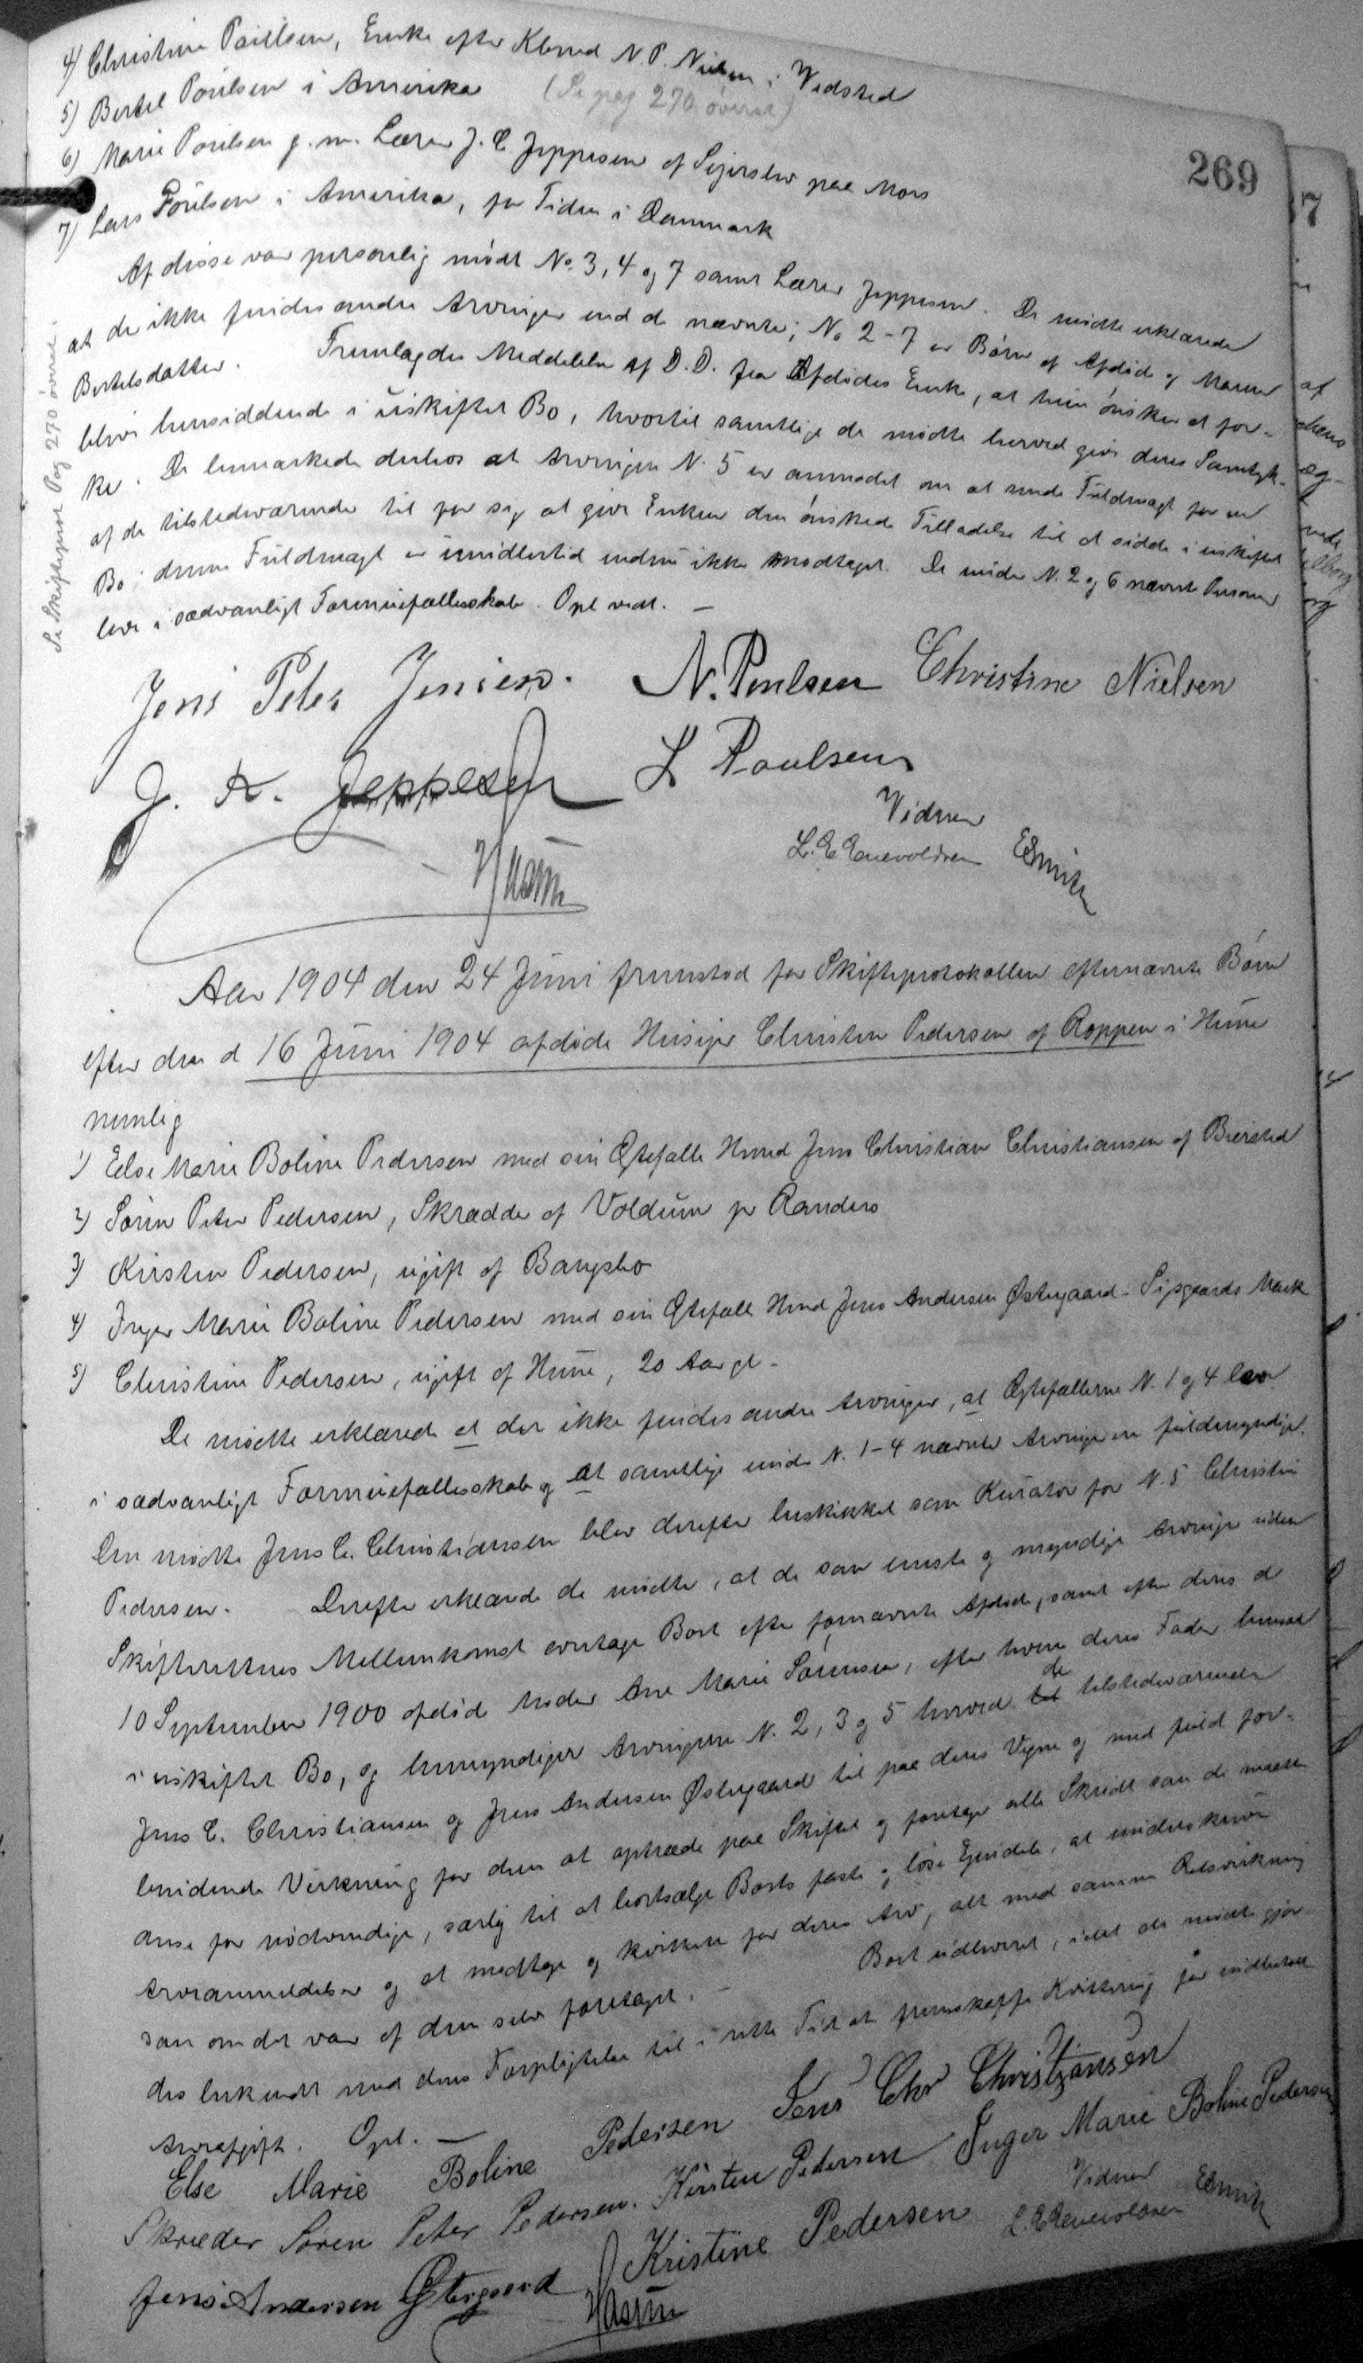 269
4) Christine Poulsen, Enke efter Kbmd N. P. Nielsen i Vedsted
5) Bertel Poulsen i Amerika (Se pag 270 øverst)
6) Marie Poulsen g. m. Lærer J. C. Jeppesen af Sejerslev paa Mors
7) Lars Poulsen i Amerika, for Tiden i Danmark
Af disse var personlig mødt No. 3, 4 og 7 samt Lærer Jeppesen. De mødte erklærede
at de ikke findes andre Arvinger end de nævnte; No 2-7 er Børn af Afdøde og Maren
Bertelsdatter. Fremlagdes Meddelelse af D. D. fra Afdødes Enke, at hun ønsker at for-
blive hensiddende i uskiftet Bo, hvortil samtlige de mødte herved giver deres Samtyk-
ke. De bemærkede derhos at Arvingen N. 5 er anmodet om at sende Fuldmagt for en
af de tilstedeværende til for sig at give Enken den ønskede Tilladelse til at sidde i uskiftet
Bo; denne Fuldmagt er imidlertid endnu ikke modtaget. De under N. 2 og 6 nævnte Personer
lever i sædvanligt Formuefællesskab. Opl vedt. —
Se Skifteprot Pag 270 øverst
Jens Peter Jensen. N. Poulsen Christine Nielsen
J. K. Jeppesen L Poulsen
Vidner
L. E Enevoldsen ESmith
Aar 1904 den 24 Juni fremstod for Skifteprotokollen efternævnte Børn
efter den d 16 Juni 1904 afdøde Husejer Christen Pedersen af Roppen i Hune
nemlig
1) Else Marie Boline Pedersen med sin Ægtefælle Hmd Jens Christian Christiansen af Biersted
2) Søren Peter Pedersen, Skrædder af Voldum pr Randers
3) Kirsten Pedersen, ugift af Bangsbo
4) Inger Marie Boline Pedersen med sin Ægtefælle Hmd Jens Andersen Østergaard - Sejsgaards Mark
5) Christine Pedersen, ugift af Hune, 20 Aar gl -
De mødte erklærede at der ikke findes andre Arvinger, at Ægtefællerne N. 1 og 4 lever
i sædvanligt Formuefællesskab og at samtlige under N. 1-4 nævnte Arvinger er fuldmyndige.
Den mødte Jens C. Christiansen blev derefter beskikket som Kurator for N. 5 Christine
Pedersen. Derefter erklærede de mødte, at de som eneste og myndige Arvinger uden
Skifterettens Mellemkomst overtage Boet efter fornævnte Afdøde, samt efter deres d
10 September 1900 afdøde Moder Ane Marie Sørensen, efter hvem deres Fader hensad
i uskiftet Bo, og bemyndiger Arvingerne N. 2, 3 og 5 herved de tilstedeværende
Jens C. Christiansen og Jens Andersen Østergaard til paa deres Vegne og med fuld for-
bindende Virkning for dem at optræde paa Skiftet og foretage alle Skridt som de maatte
anse for nødvendige, særlig til at bortsælge Boets faste og løse Ejendele, at underskrive
Arveanmeldelser og at modtage og kvittere for deres Arv, alt med samme Retsvirkning
som om det var af dem selv foretaget. - Boet udleveret, idet de mødte gjør-
des bekendt med deres Forpligtelse til i rette Tid at fremskaffe Kvittering for indbetalt
Arveafgift. Opl. —
Else Marie Boline Pedersen Jens Chr Christiansen
Skræder Søren Peter Pedersen. Kirsten Pedersen Inger Marie Boline Pedersen
Jens Andersen Østergaard Kristine Pedersen
Vidner
L. E Enevoldsen ESmith